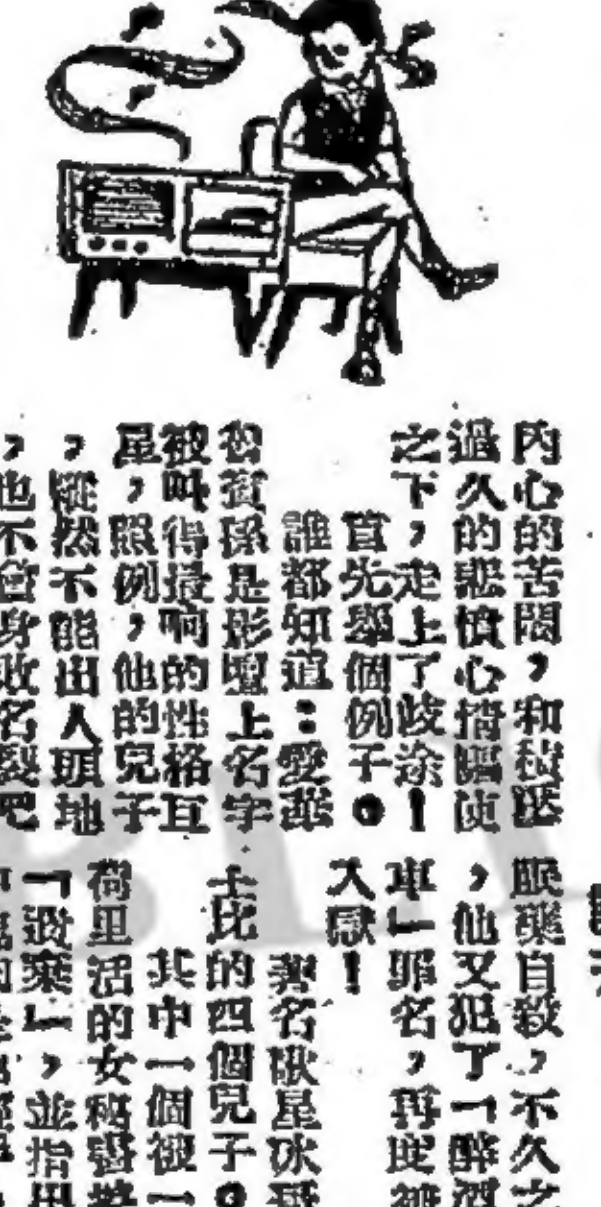 內心的苦悶,和積壓
過久的悲憤心情驅使
之下,走上了歧途!
首先舉個例子。
誰都知道:愛華
羅賓孫是影壇上名字
被叫得最响的性格巨
星,照例,他的兒子
,縱然不能出人頭地
,也不會身敗名裂吧
服藥自殺,不久之
,他又犯了「醉酒
車」罪名,再度被
入獄!
著名歌星冰哥
士比的四個兒子。
其中一個被一
荷里活的女秘書
「遺棄」,並指出